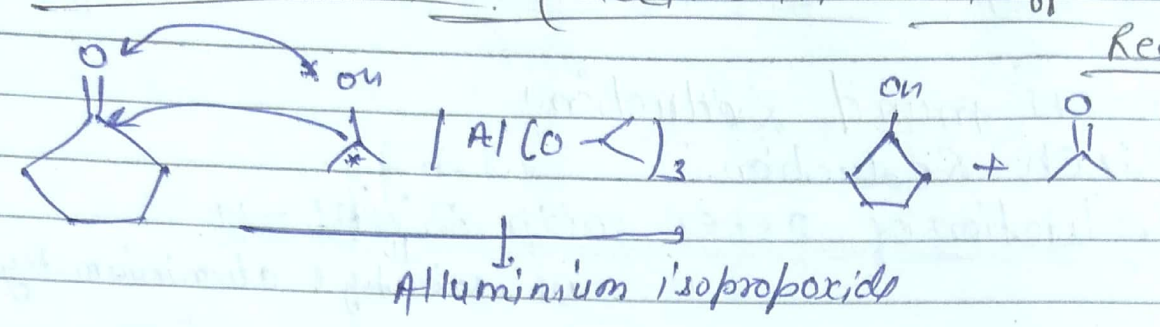 of
Rec
O
* OH
*
| Al(O-<)3
OH
O
+
Alluminium isopropoxide